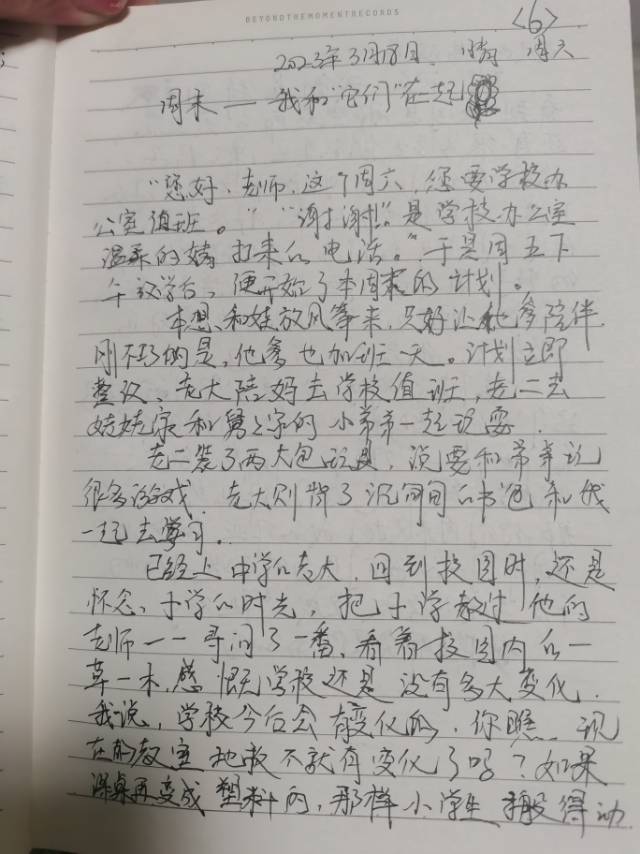 BEYONDTHEMOMENTRECORDS
<6>
2023年3月18日. 晴 周六
周末一一我和"它们"在一起
"您好、老师、这个周六,您要学校办
公室值班。" "谢谢!" 是学校办公室
温柔的 打来的电话。" 于是周五下
午放学后、便开始了本周末的计划。
本想和娃放风筝来,只好让他爹陪伴.
刚不巧的是,他爹也加班一天。计划立即
整改、老大陪妈去学校值班,老二去
姑姑家和舅舅家的小弟弟一起玩耍.
老二装了两大包玩具,说要和弟弟玩
很多游戏. 老大则背了沉甸甸的书包和我
一起去学习.
已经上中学的老大,回到校园时,还是
怀念小学的时光,把小学教过他的
老师一一寻问了一番、看着校园内的一
草一木.感慨学校还是没有多大变化.
我说,学校今后会有变化的.你瞧 现
在的教室地板不就有变化了吗?如果
课桌再变成塑料的,那样小学生搬得动